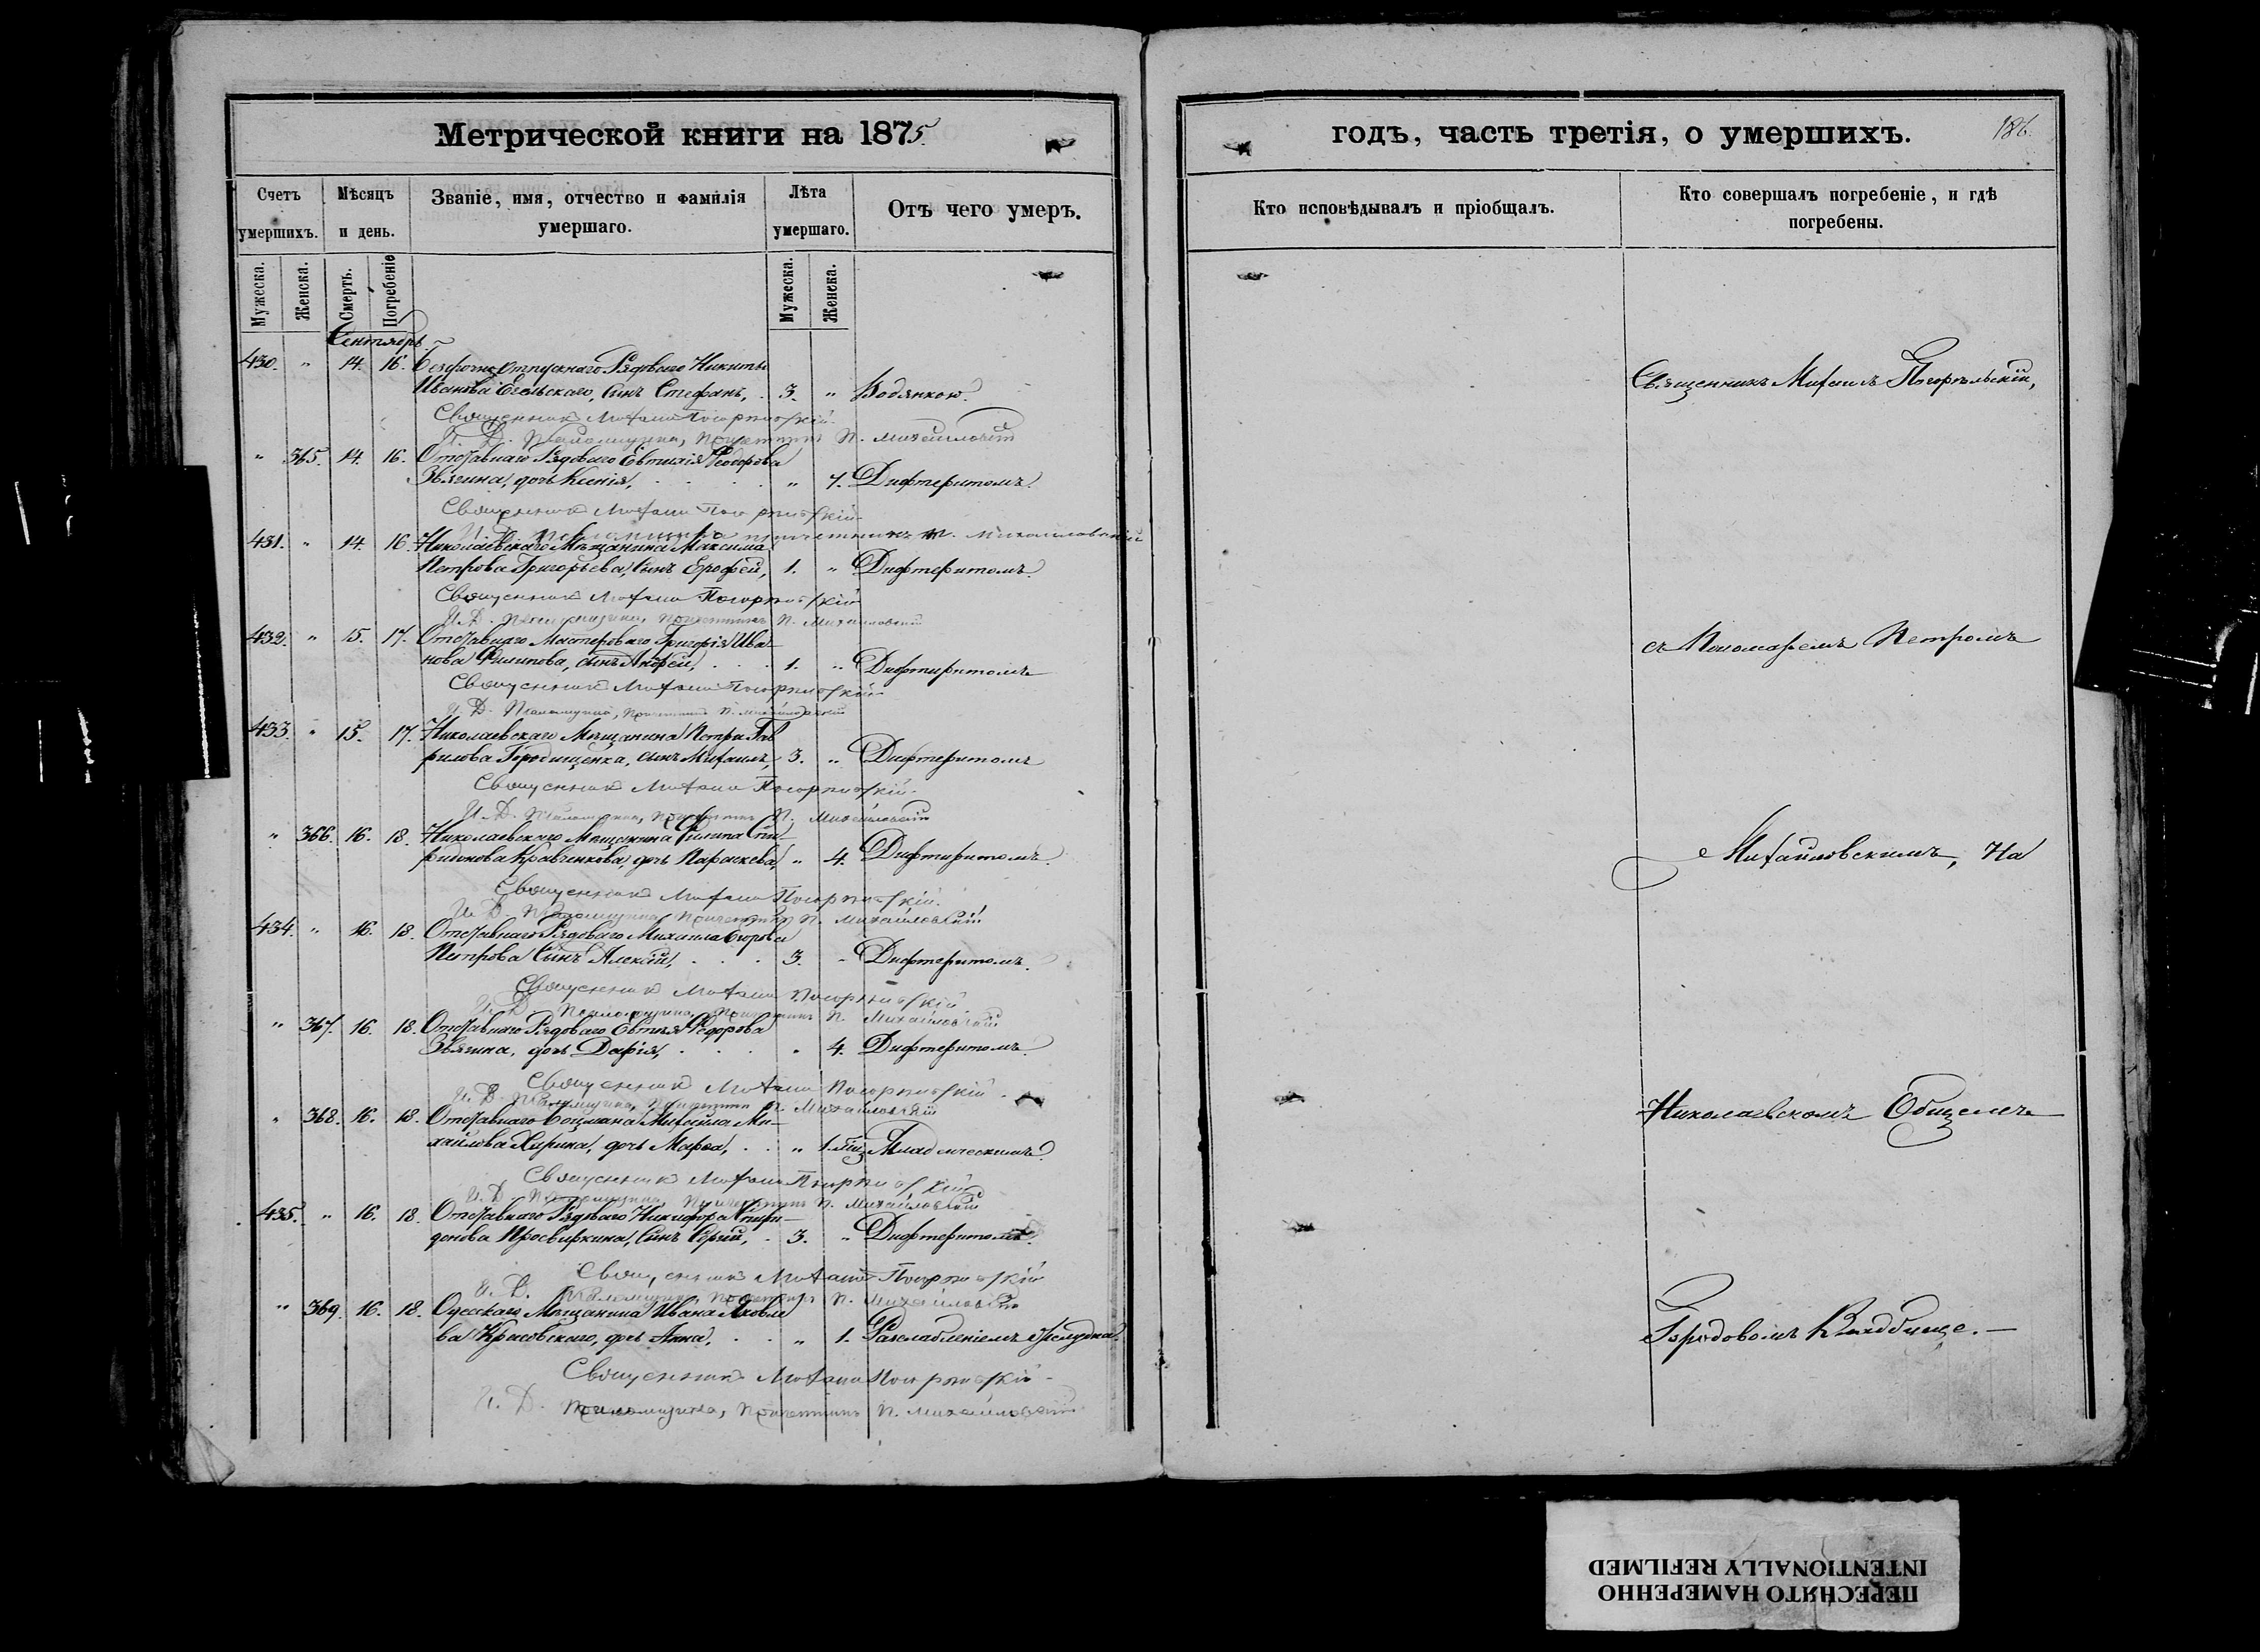 Метрической книги на 1875.
годъ, часть третія, о умершихъ.
186.
Счетъ умершихъ.
Мѣсяцъ и день.
Званіе, имя, отчество и фамилія умершаго.
Лѣта умершаго.
Отъ чего умеръ.
Кто исповѣдывалъ и пріобщалъ.
Кто совершалъ погребеніе, и гдѣ погребены.
Мужеска.
Женска.
Смерть.
Погребеніе
Мужеска.
Женска.
Сентябрь
430. " 14. 16. Безсрочно отпускнаго Рядоваго Никиты
Иванова сынъ Стефанъ, 3. " Водянкою.
Священникъ Михаилъ Погорѣльскій
И. Д. Псаломщика, Причетникъ П. Михайловскій
" 365. 14. 16. Отставнаго Рядоваго Евтихія Ѳеодорова
Звягина, дочь Ксенія, " Дифтеритомъ.
Священникъ Михаилъ Погорѣльскій
И. Д. Псаломщика причетникъ П. Михайловскій
431. " 14. 16. Николаевскаго Мѣщанина Максима
Петрова Григорьева, сынъ Ерофей, 1. " Дифтеритомъ.
Священникъ Михаилъ Погорѣльскій
И. Д. Псаломщика, Причетникъ П. Михайловскій
432. " 15. 17. Отставнаго Мастероваго Григорія Ива-
нова Филипова, сынъ Андрей, 1. " Дифтеритомъ
Священникъ Михаилъ Погорѣльскій
И. Д. Псаломщика, Причетникъ П. Михайловскій
433. " 15. 17. Николаевскаго Мѣщанина Петра Гав
рилова Городищенка, сынъ Михаилъ, 3. " Дифтеритомъ
Священникъ Михаилъ Погорѣльскій
И. Д. Псаломщика, Причетникъ П. Михайловскій
" 366. 16. 18. Николаевскаго Мѣщанина Филипа Спи-
ридонова Кравченкова, дочь Параскева, " 4. Дифтеритомъ.
Священникъ Михаилъ Погорѣльскій
И. Д. Псаломщика Причетникъ П. Михайловскій
434. " 16. 18. Отставнаго Рядоваго Михаила Егорова
Петрова сынъ Алексій, 3. " Дифтеритомъ.
Священникъ Михаилъ Погорѣльскій
И. Д. Псаломщика, Причетникъ П. Михайловскій
" 367. 16. 18. Отставнаго Рядоваго Ѳедорова
Звягина, дочь Дарія, " 4. Дифтеритомъ.
Священникъ Михаилъ Погорѣльскій
И. Д. Псаломщика, Причетникъ П. Михайловскій
" 368. 16. 18. Отставнаго Боцмана Михаила Ми-
хайлова дочь Марѳа, " Младенческимъ.
Священникъ Михаилъ Погорѣльскій
И. Д. Псаломщика Причетникъ П. Михайловскій
435. " 16. 18. Отставнаго Рядоваго Никифора Спири-
донова Просвиркина, сынъ Сергій, 3. " Дифтеритомъ.
Священникъ Михаилъ Погорѣльскій
И. Д. Псаломщика, Причетникъ П. Михайловскій
" 369. 16. 18. Одесскаго Мѣщанина Ивана Яковле
ва Красовскаго, дочь Анна, " 1. Разслабленіемъ желудка.
Священникъ Михаилъ Погорѣльскій
И. Д. Псаломщика, Причетникъ П. Михайловскій
Священникъ Михаилъ Погорѣльскій,
съ Пономаремъ Петромъ
Михайловскимъ, На
Николаевскомъ Общемъ
Городовомъ Кладбище.
ПЕРЕСНЯТО НАМЕРЕННО
INTENTIONALLY REFILMED